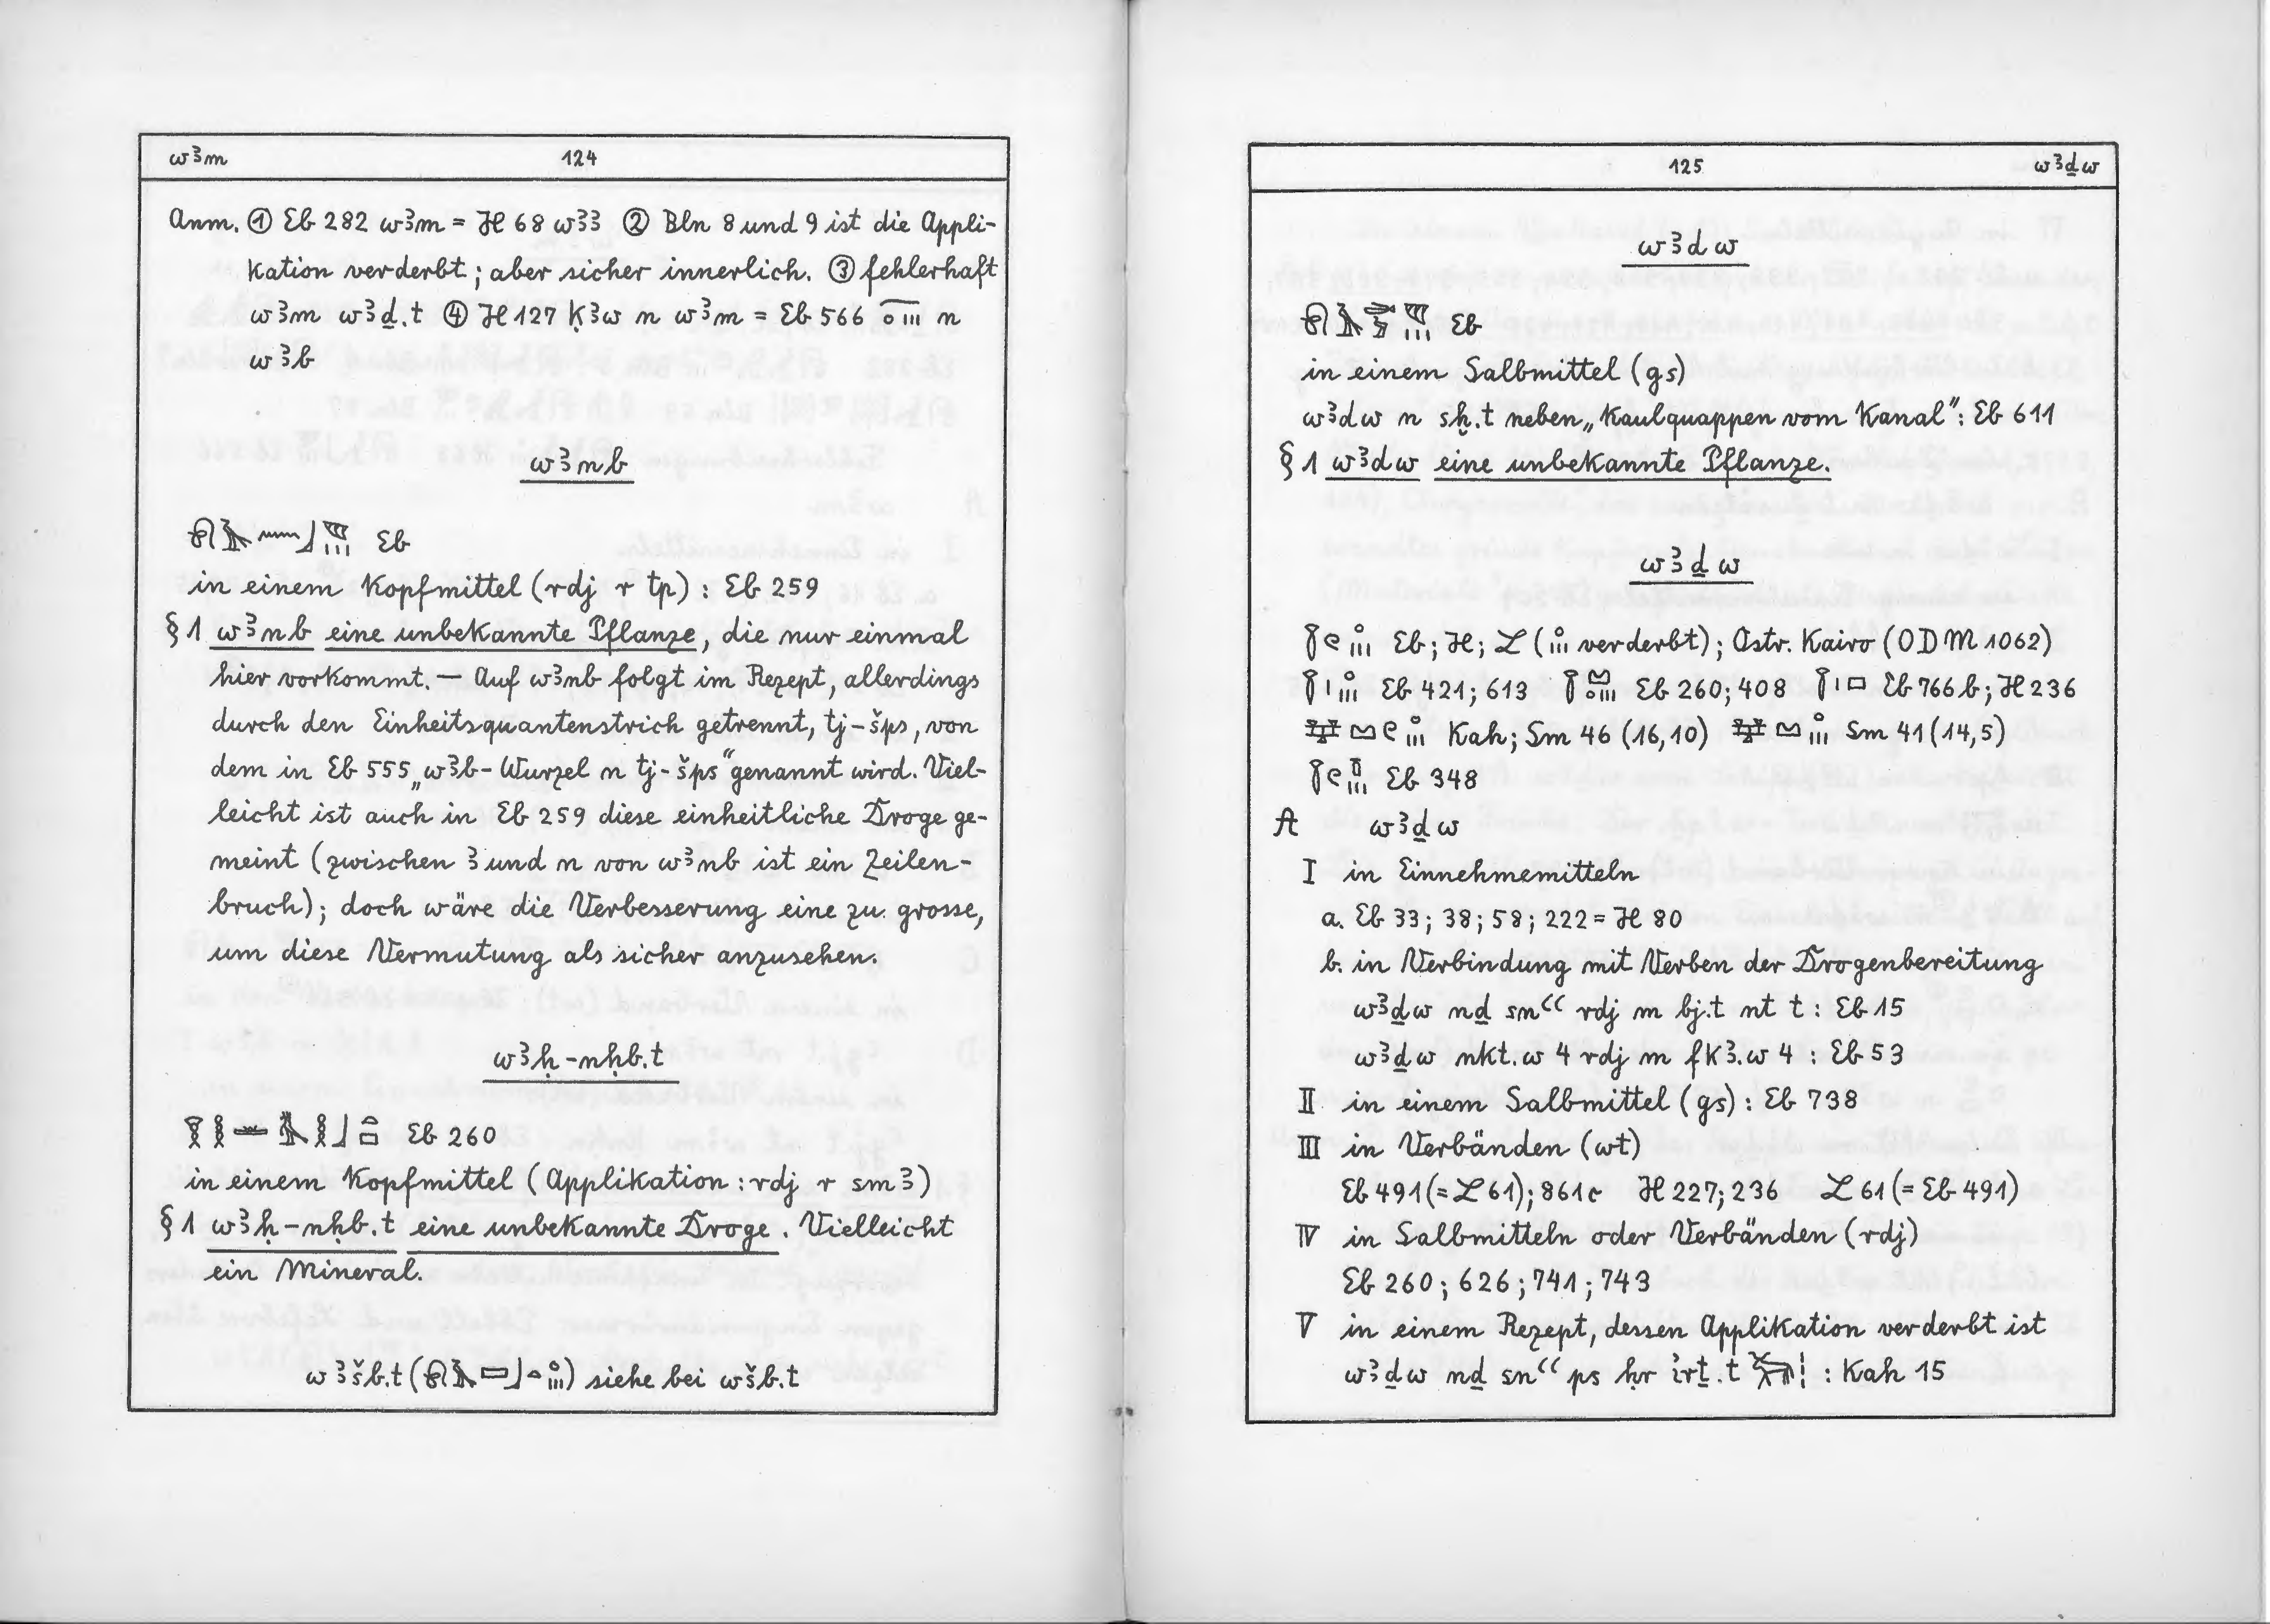 wꜣm 124
Anm. ① Eb 282 wꜣm = H 68 wꜣꜣ ② Bln 8 und 9 ist die Appli-
kation verderbt; aber sicher innerlich. ③ fehlerhaft
wꜣm wꜣḏ.t ④ H 127 ḳꜣw n wꜣm = Eb 566 n
wꜣb
wꜣnb
Eb
in einem Kopfmittel (rdj r tp) : Eb 259
§ 1 wꜣnb eine unbekannte Pflanze, die nur einmal
hier vorkommt. — Auf wꜣnb folgt im Rezept, allerdings
durch den Einheitsquantenstrich getrennt, tj-šps, von
dem in Eb 555 „wꜣb-Wurzel n tj-šps“ genannt wird. Viel-
leicht ist auch in Eb 259 diese einheitliche Droge ge-
meint (zwischen ꜣ und n von wꜣnb ist ein Zeilen-
bruch); doch wäre die Verbesserung eine zu grosse,
um diese Vermutung als sicher anzusehen.
wꜣḥ-nḥb.t
Eb 260
in einem Kopfmittel (Applikation : rdj r smꜣ)
§ 1 wꜣḥ-nḥb.t eine unbekannte Droge. Vielleicht
ein Mineral.
wꜣšb.t () siehe bei wšb.t
125 wꜣḏw
wꜣdw
Eb
in einem Salbmittel (gs)
wꜣdw n sḫ.t neben „Kaulquappen vom Kanal“: Eb 611
§ 1 wꜣdw eine unbekannte Pflanze.
wꜣḏw
Eb; H; L ( verderbt); Ostr. Kairo (ODM 1062)
Eb 421; 613 Eb 260; 408 Eb 766 b; H 236
Kah; Sm 46 (16,10) Sm 41 (14,5)
Eb 348
A wꜣḏw
I in Einnehmemitteln
a. Eb 33; 38; 58; 222 = H 80
b. in Verbindung mit Verben der Drogenbereitung
wꜣḏw nḏ snꜥꜥ rdj m bj.t nt t : Eb 15
wꜣḏw nkt.w 4 rdj m fkꜣ.w 4 : Eb 53
II in einem Salbmittel (gs) : Eb 738
III in Verbänden (wt)
Eb 491 (= L 61); 861c H 227; 236 L 61 (= Eb 491)
IV in Salbmitteln oder Verbänden (rdj)
Eb 260; 626; 741; 743
V in einem Rezept, dessen Applikation verderbt ist
wꜣḏw nḏ snꜥꜥ ps ḥr ꞽrṯ.t : Kah 15